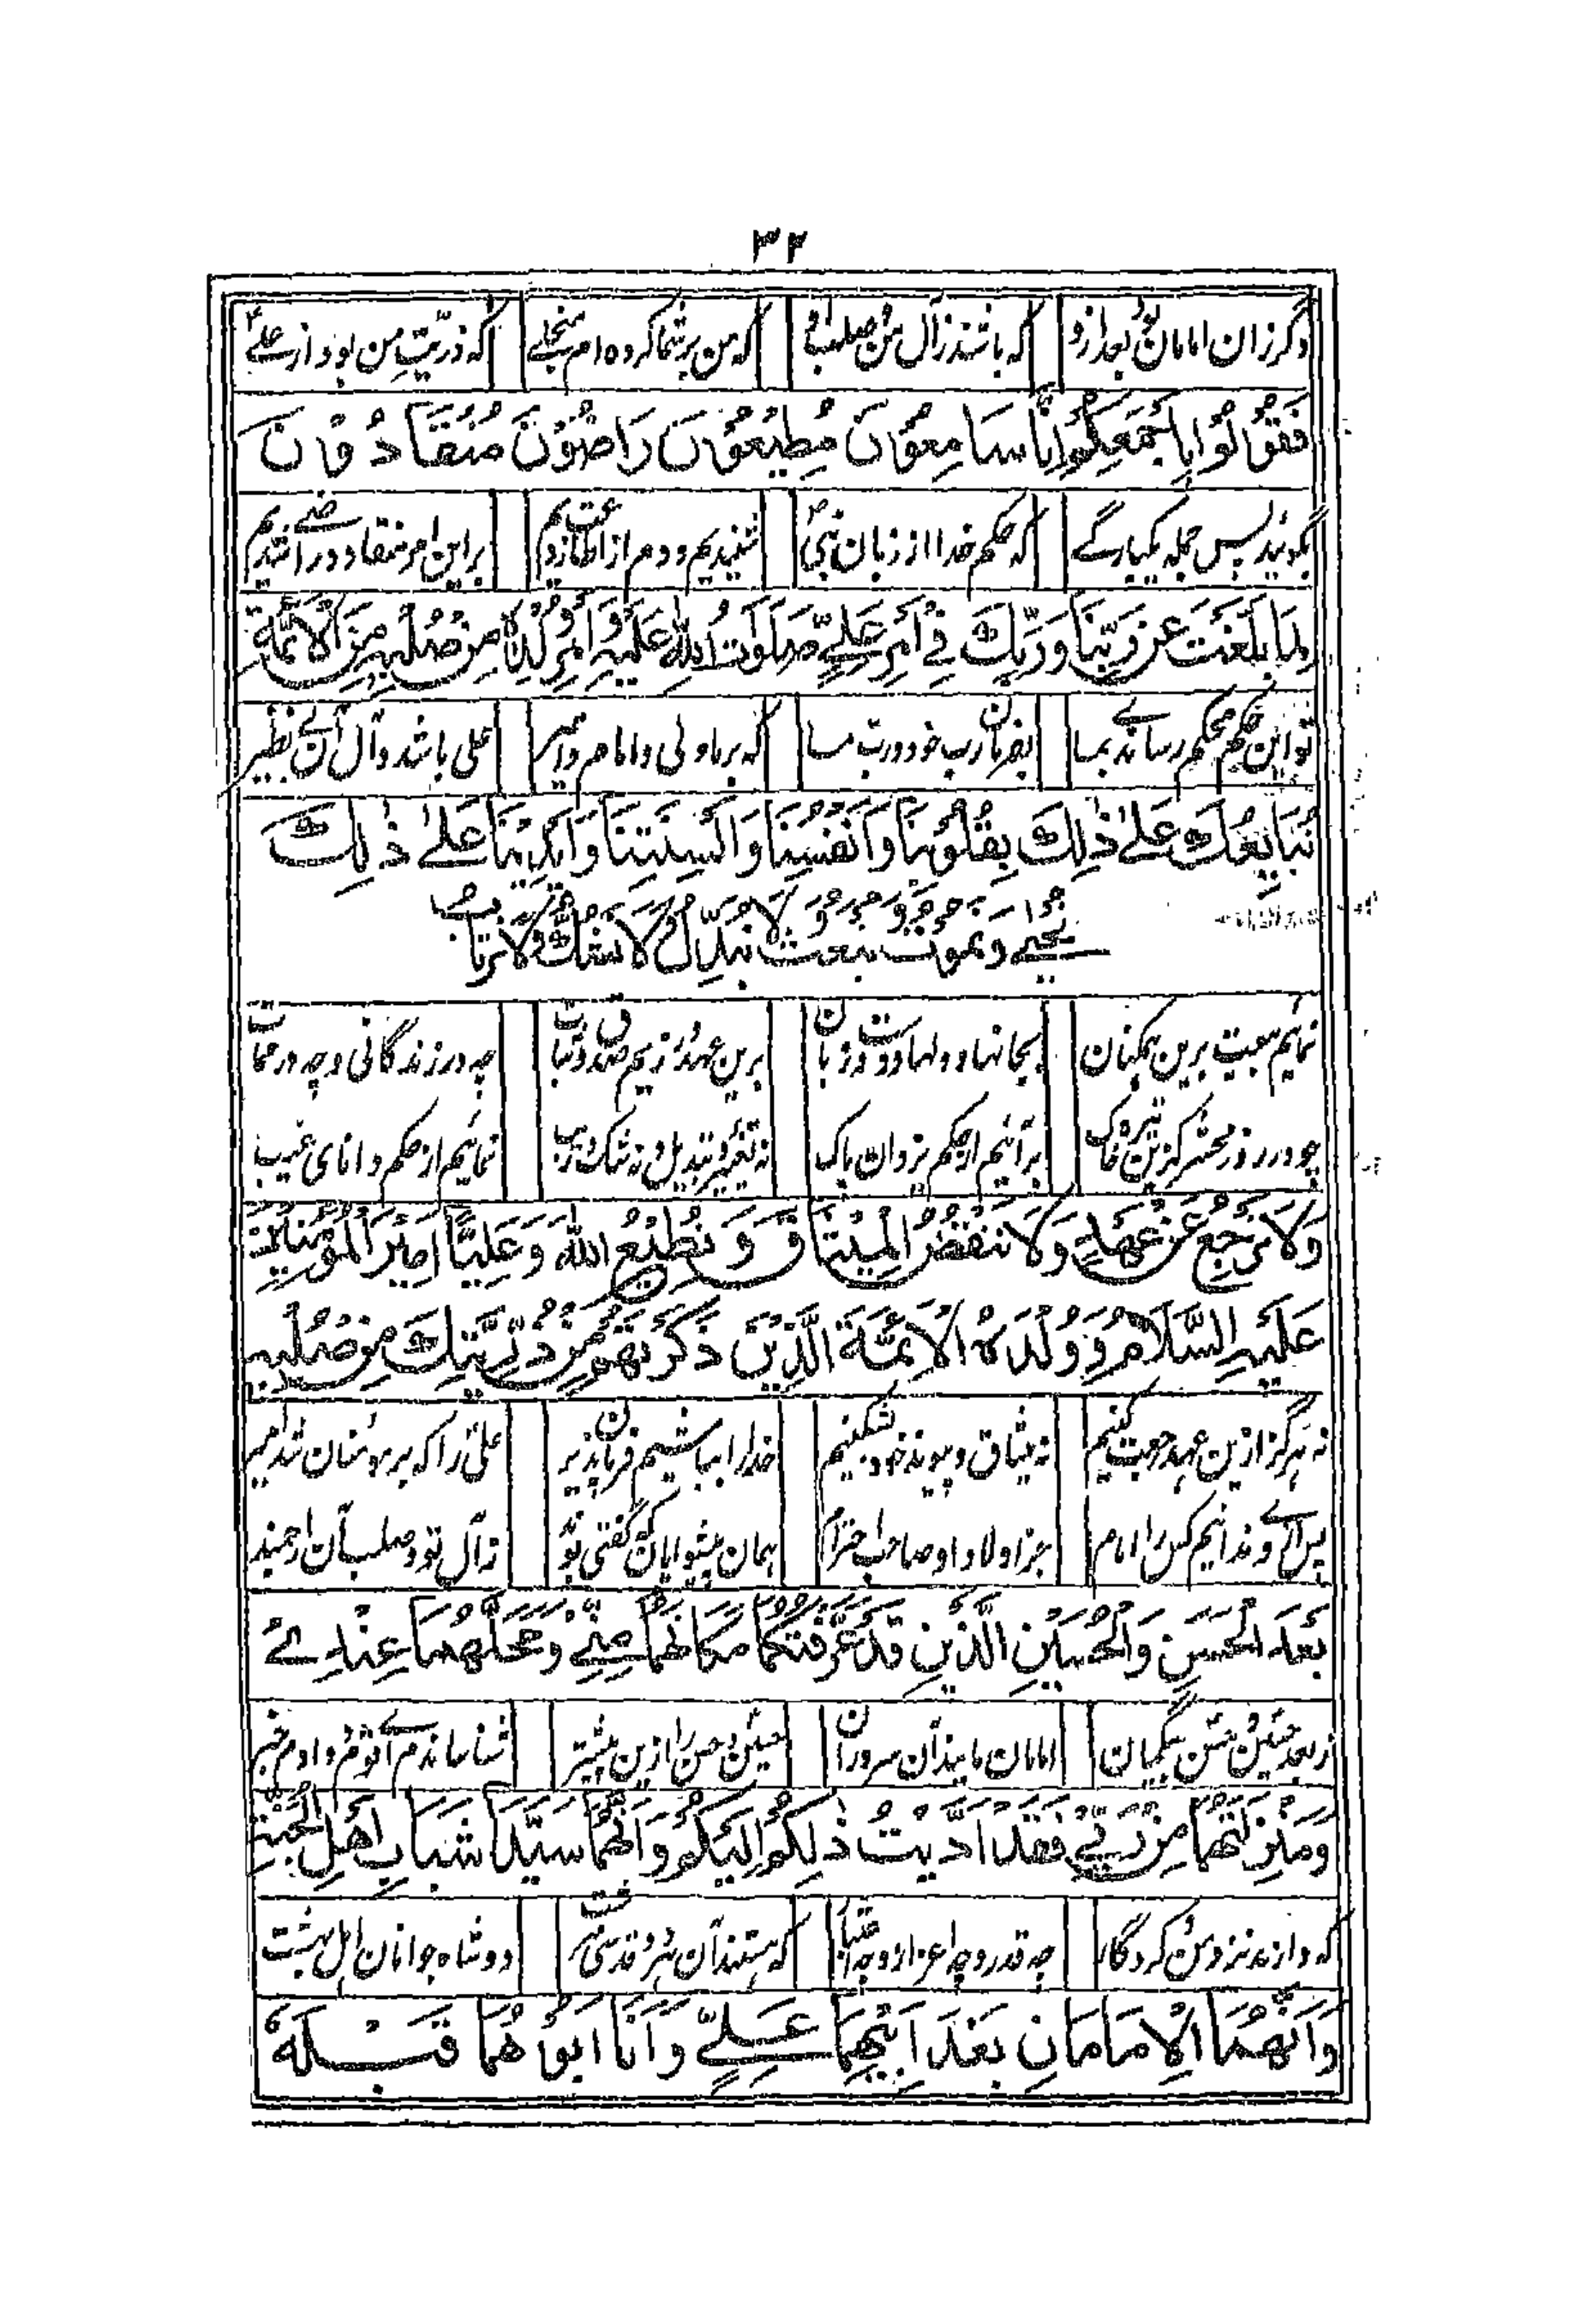 ٣٢
دگر زان امامان بود بعد ازو که باشند ز آل من و صلب او که من بر شما کرده‌ام منجلی که ذریّتِ من بود از علی
فَقُوْلُوْا بِاَجْمَعِكُمْ اِنَّا سَامِعُوْنَ مُطِيْعُوْنَ رَاضُوْنَ مُنْقَادُوْنَ
بگوئید پس جمله یکبارگے که حکم خدا از زبان نبی شنیدیم و دم از اطاعت زدیم بر این امر منقاد و راضی شدیم
لِمَا بَلَّغْتَ عَنْ رَبِّنَا وَرَبِّكَ فِيْ اَمْرِ عَلِيٍّ صَلَوَاتُ اللهِ عَلَيْهِ وَاَمْرِ وُلْدِهِ مِنْ صُلْبِهِ مِنَ الْاَئِمَّةِ
تو این حکم محکم رساندے بما بفرمان رب خود و رب ما که بر ما ولی و امام و امیر علی باشد و آل آن بے نظیر
نُبَايِعُكَ عَلٰى ذٰلِكَ بِقُلُوْبِنَا وَاَنْفُسِنَا وَاَلْسِنَتِنَا وَاَيْدِيْنَا عَلٰى ذٰلِكَ
نَحْيٰى وَنَمُوْتُ وَنُبْعَثُ لَا نُبَدِّلُ وَلَا نَشُكُّ وَلَا نَرْتَابُ
نمائیم بیعت برین همکنان بجانها و دلها و دست و زبان برین عهد ورزیم صدق و ثبات چه در زندگانی و چه در ممات
چو در روز محشر کزین تیره خاک برآئیم از حکم یزدان پاک نه تغییر و تبدیل و نه شک و ریب نمائیم از حکم دانای غیب
وَلَا نَرْجِعُ عَنْ عَهْدٍ وَلَا نَنْقُضُ الْمِيْثَاقَ وَنُطِيْعُ اللهَ وَعَلِيًّا اَمِيْرَ الْمُؤْمِنِيْنَ
عَلَيْهِ السَّلَامُ وَوُلْدَهُ الْاَئِمَّةَ الَّذِيْنَ ذَكَرْتَهُمْ مِنْ ذُرِّيَّتِكَ مِنْ صُلْبِهِ
نه هرگز ازین عهد رجعت کنیم نه میثاق و پیوند خود بشکنیم خدا را بباشیم فرمان پذیر علیّ را که بر مومنان شد امیر
پس از وے ندانیم کس را امام بجز اولاد او صاحب احترام همان پیشوایان که گفتی تو ز آل تو و صلب آن ارجمند
بَعْدَ الْحَسَنِ وَالْحُسَيْنِ الَّذِيْنَ قَدْ عَرَّفْتُكُمْ مَكَانَهُمَا مِنِّيْ وَمَحَلَّهُمَا عِنْدِيْ
ز بعد حسین و حسن بیگمان امامان مایند آن سروران حسین و حسن را ازین پیشتر شناساندم و دادم خبر
وَمَنْزِلَتَهُمَا مِنْ رَبِّيْ فَقَدْ اَدَّيْتُ ذٰلِكُمْ اِلَيْكُمْ وَاَنَّهُمَا سَيِّدَا شَبَابِ اَهْلِ الْجَنَّةِ
که دارند نزد من و کردگار چه قدر و چه اعزاز و چه اعتبار که هستند آن هر دو قدسی سرشت دو شاه جوانان اهل بهشت
وَاَنَّهُمَا الْاِمَامَانِ بَعْدَ اَبِيْهِمَا عَلِيٍّ وَاَنَا اَبُوْهُمَا قَبْلَهٗ